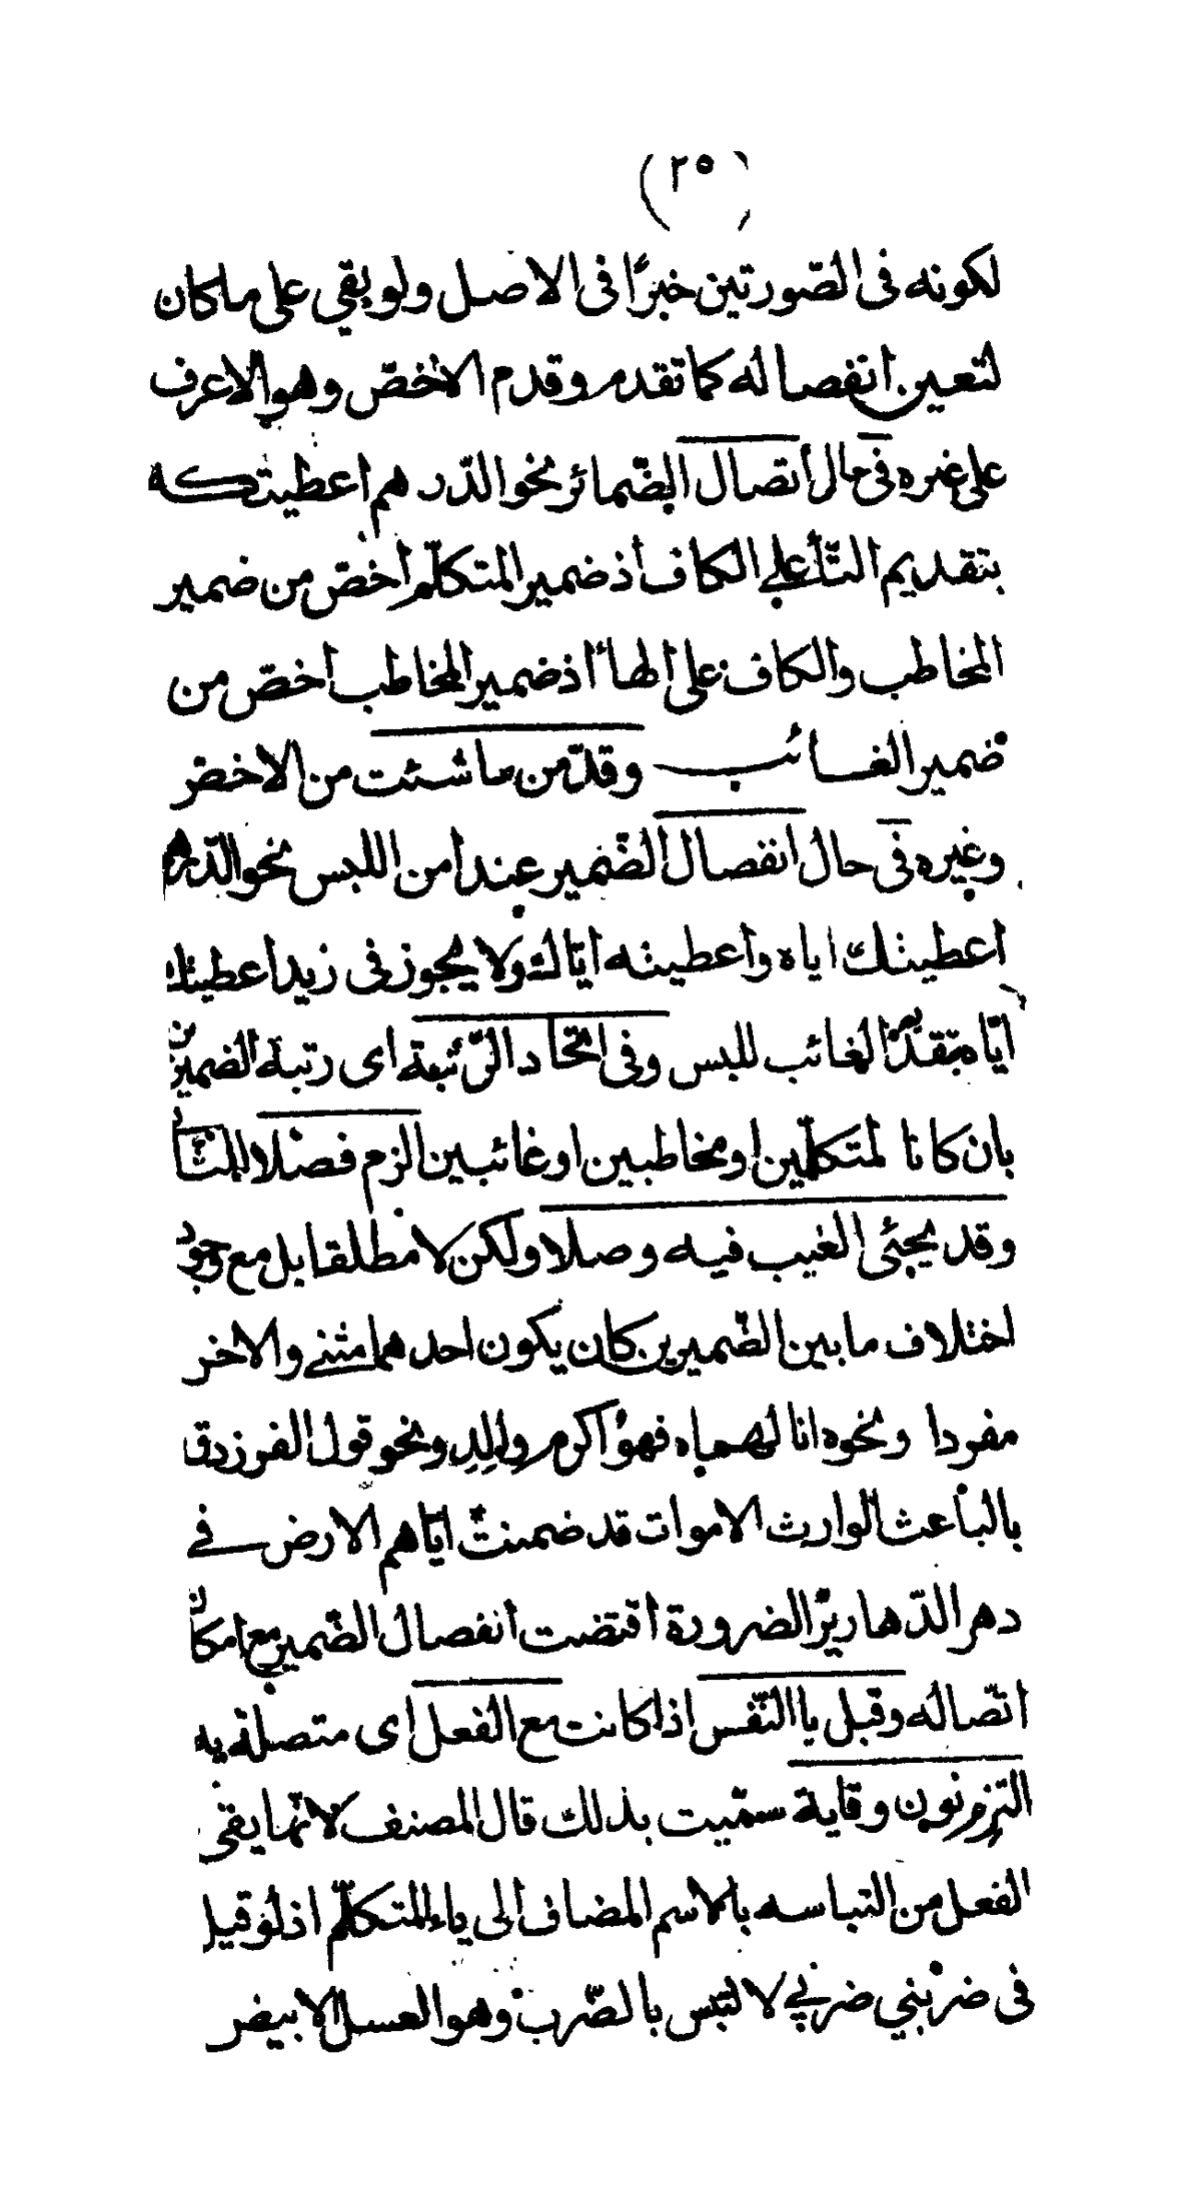 (٢٥)
لكونه فى الصّورتين خبرًا فى الاصل ولو بقي على ما كان
لتعين انفصاله كما تقدم وقدم الاخصّ وهو الاعرف
على غيره فى حال أتصال الضّمائر نحو الدّرهم اعطيتكه
بتقديم التّاء على الكاف أذ ضمير المتكلّم أخصّ من ضمير
المخاطب والكاف على الهاء اذ ضمير المخاطب أخصّ من
ضمير الغائب وقدّمن ما شئت من الاخصّ
وغيره فى حال انفصال الضّمير عند أمن اللبس نحو الدّرهم
اعطيتك اياه وأعطيته ايّاك ولا يجوز فى زيد أعطيتك
ايّاه بتقديم الغائب للبس وفى اتّحاد الرّتبة اى رتبة الضميرين
بان كانا لمتكلّمين او مخاطبين او غائبين الزم فصلا للتّثا
وقد يجئ الغيب فيه وصلا ولكن لا مطلقا بل مع وجود
اختلاف ما بين الضّميرين كان يكون احدهما مثنى والاخر
مفردا ونحوه انا لهماه قفو أكرم والد ونحو قول الفرزدق
بالباعث الوارث الاموات قد ضمنت ايّاهم الارض فى
دهر الدّهارير الضرورة أقتضت أنفصال الضّمير مع امكان
اتّصاله وقبل يا النّفس اذا كانت مع الفعل اى متصلة به
التزم نون وقاية سمّيت بذلك قال المصنف لانّها يقى
الفعل من التباسه بالاسم المضاف ألى ياء المتكلّم اذ لو قيل
فى ضربني ضربي لا لتبس بالضّرب وهو العسل الابيض